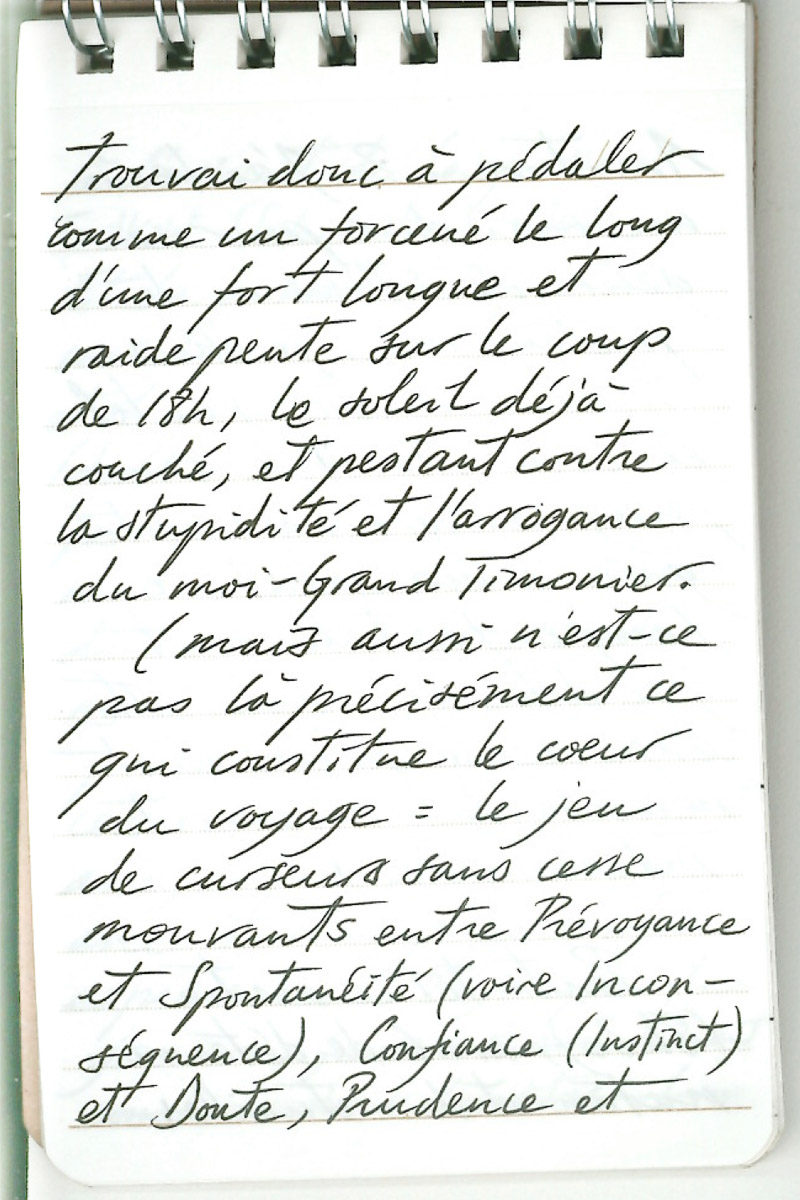 Trouvai donc à pédaler
comme un forcené le long
d'une fort longue et
raide pente sur le coup
de 18h, le soleil déjà
couché, et pestant contre
la stupidité et l'arrogance
du moi-Grand Timonier.
(mais aussi n'est-ce
pas là précisément ce
qui constitue le coeur
du voyage = le jeu
de curseurs sans cesse
mouvants entre Prévoyance
et Spontanéité (voire Incon-
séquence), Confiance (Instinct)
et Doute, Prudence et